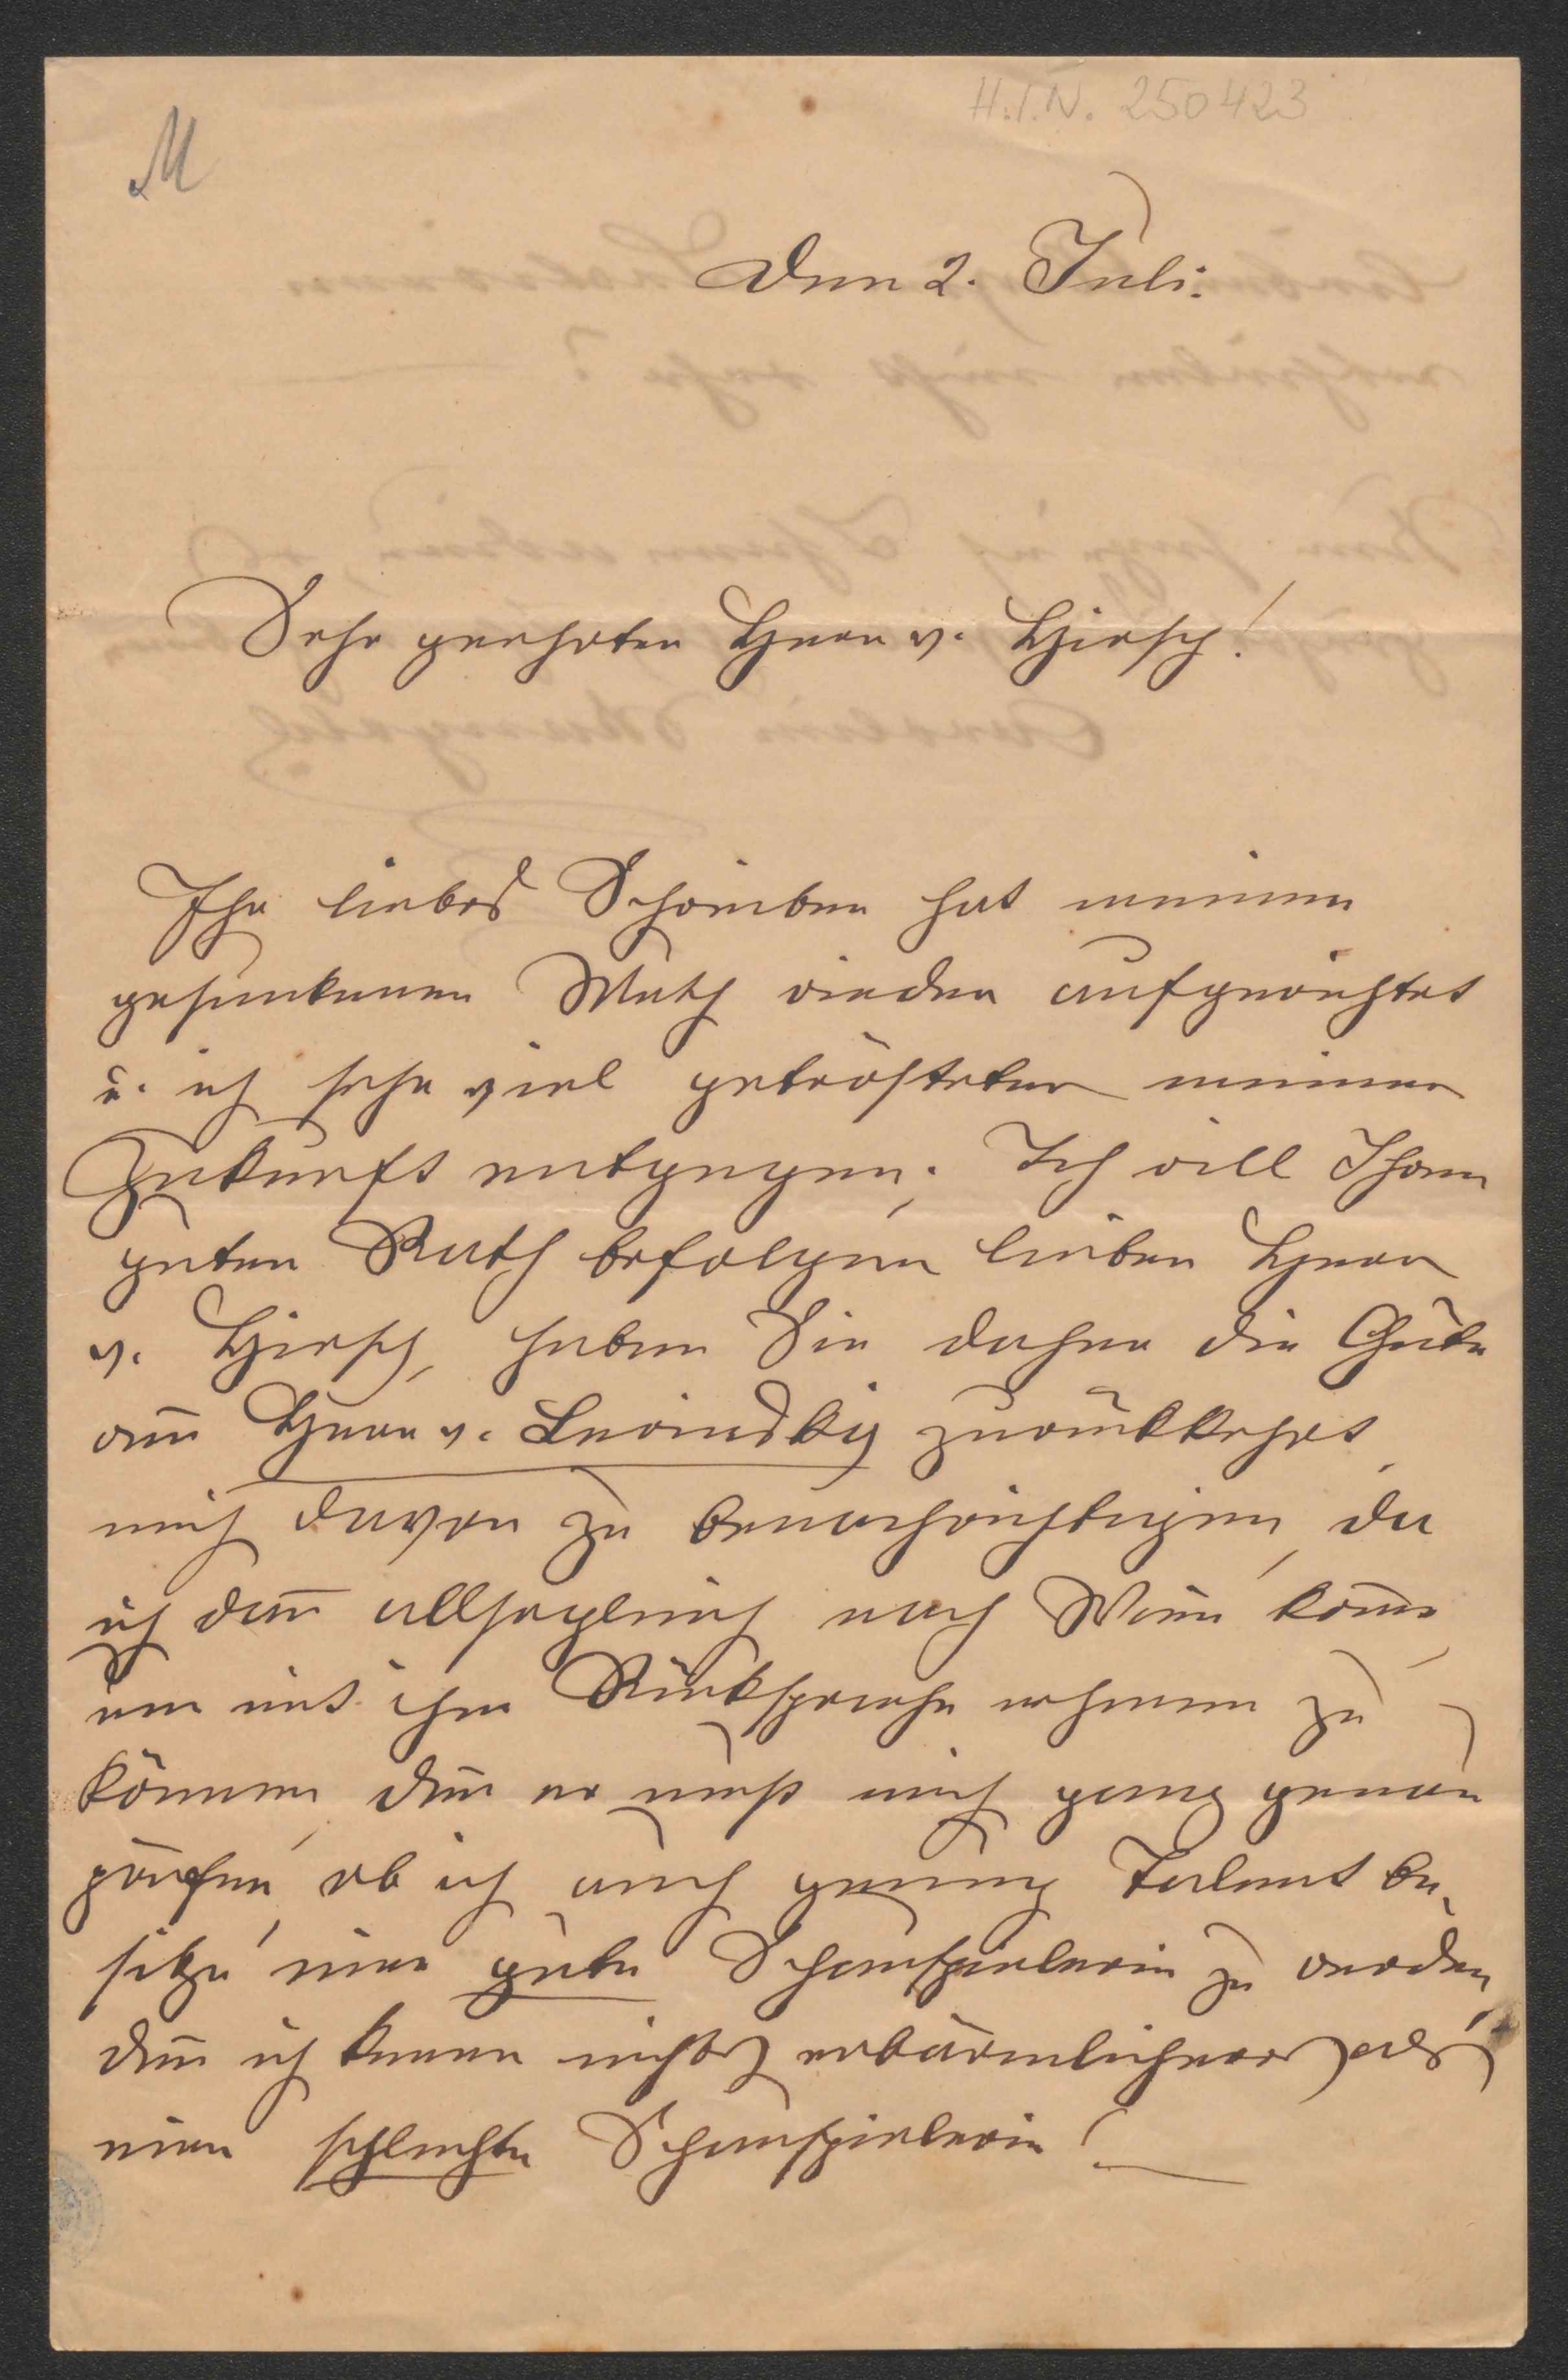 H.I.N. 250423
M
Den 2. Juli.
Sehr geehrter Herr v. Hirsch!
Ihr liebes Schreiben hat meinen
gesunkenen Muth wieder aufgerichtet
u. ich sehe viel getrösteter meiner
Zukunft entgegen. Ich will Ihren
guten Rath befolgen lieber Herr
v. Hirsch, haben Sie daher die Güte
wen̄ Herr v. Lewinsky zurückkehrt,
mich davon zu benachrichtigen, da
ich dan̄ allsogleich nach Wien kom̄e,
um mit ihm Rücksprache nehmen zu
können, den̄ er muß mich ganz genau
prüfen, ob ich auch genung Talent be-
sitze, eine gute Schauspielerin zu werden,
den̄ ich kenne nichts erbärmlicheres, als
eine schlechte Schauspielerin!